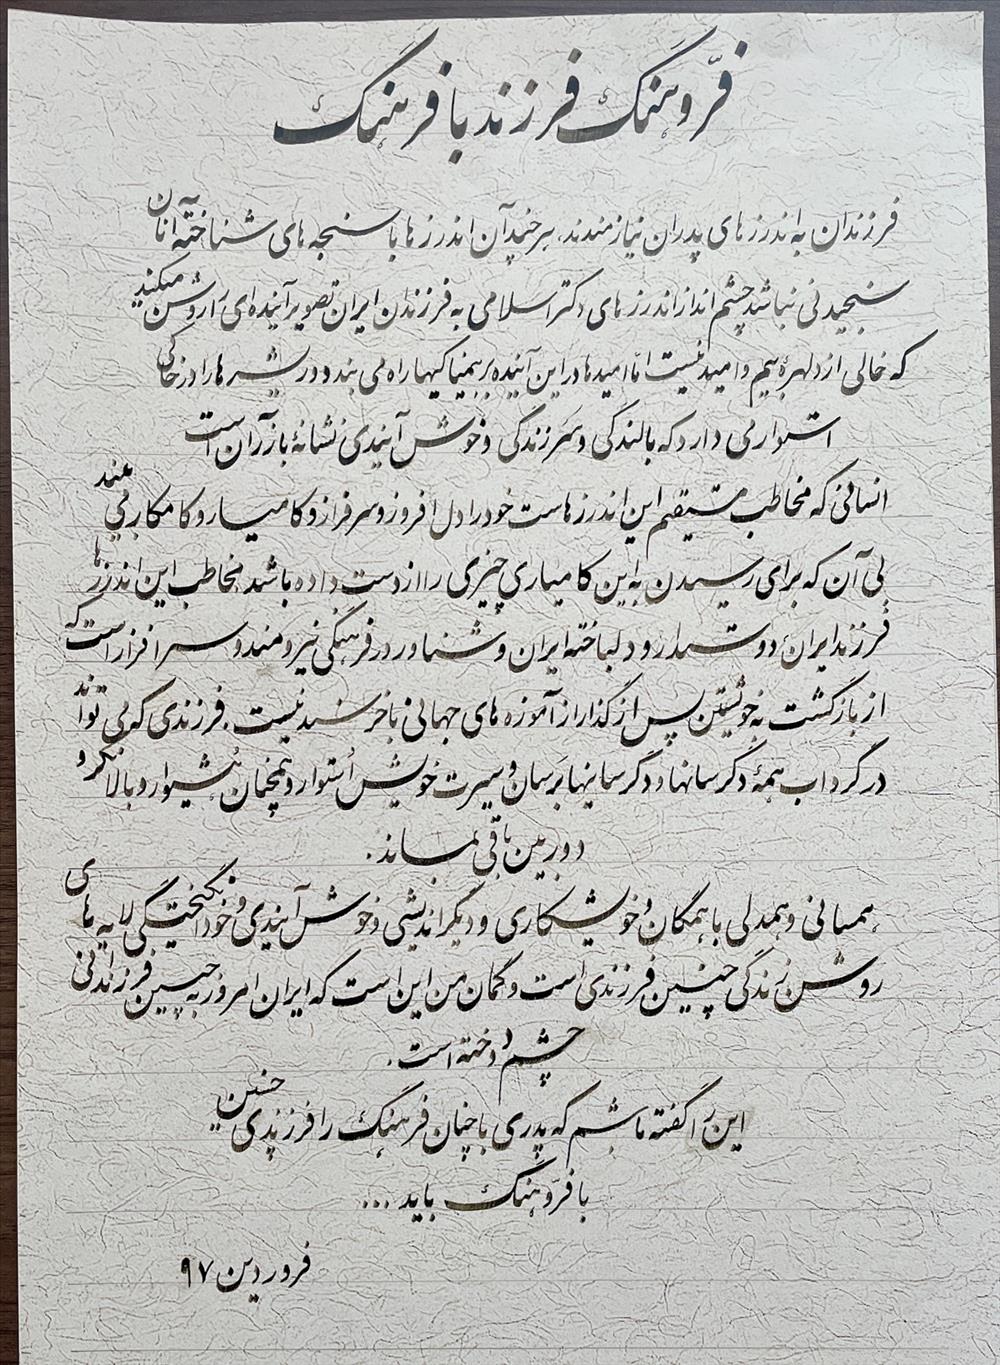 فرّ و هنگ فرزند با فرهنگ
فرزندان به اندرزهای پدران نیازمندند، هر چند آن اندرزها با سنجه‌های شناختهٔ آنان
سنجیدنی نباشد چشم انداز اندرزهای دکتر اسلامی به فرزندان ایران تصویر آینده‌ای را روشن میکند
که خالی از دلهرهٔ بیم و امید نیست امّا امیدها در این آینده بر بیمناکیها راه می بندد و ریشه‌ها را در خاکی
استوار می دارد که بالندگی و سرزندگی و خوش آیندی نشانهٔ بارز آن است
انسانی که مخاطب مستقیم این اندرزهاست خود را دل افروز و سرفراز و کامیار و کامکار می
بی آن که برای رسیدن به این کامیاری چیزی را از دست داده باشد مخاطب این اندرزها
فرزند ایران دوستدار و دلباخته ایران و شناور در فرهنگی نیرومند و سرافراز است که
از بازگشت به خویشتن پس از گذار از آموزه‌های جهانی ناخرسند نیست. فرزندی که می تواند
در گرداب همهٔ دگرسانیها و دگرسانیها بر سان و سیرت خویش اُستوار و همچنان هُشیوار و بالانگر و
دوربین باقی بماند.
همسانی و همدلی با همگان و خویشکاری و دیگراندیشی و خوش آیندی و خودانگیختگی لایه‌های
روشن زندگی چنین فرزندی است و گمان من این است که ایران امروز به چنین فرزندانی
چشم دوخته است.
این را گفته باشم که پدری با چنان فرهنگ را فرزندی چنین
با فرّ و هنگ باید ...
فروردین ۹۷